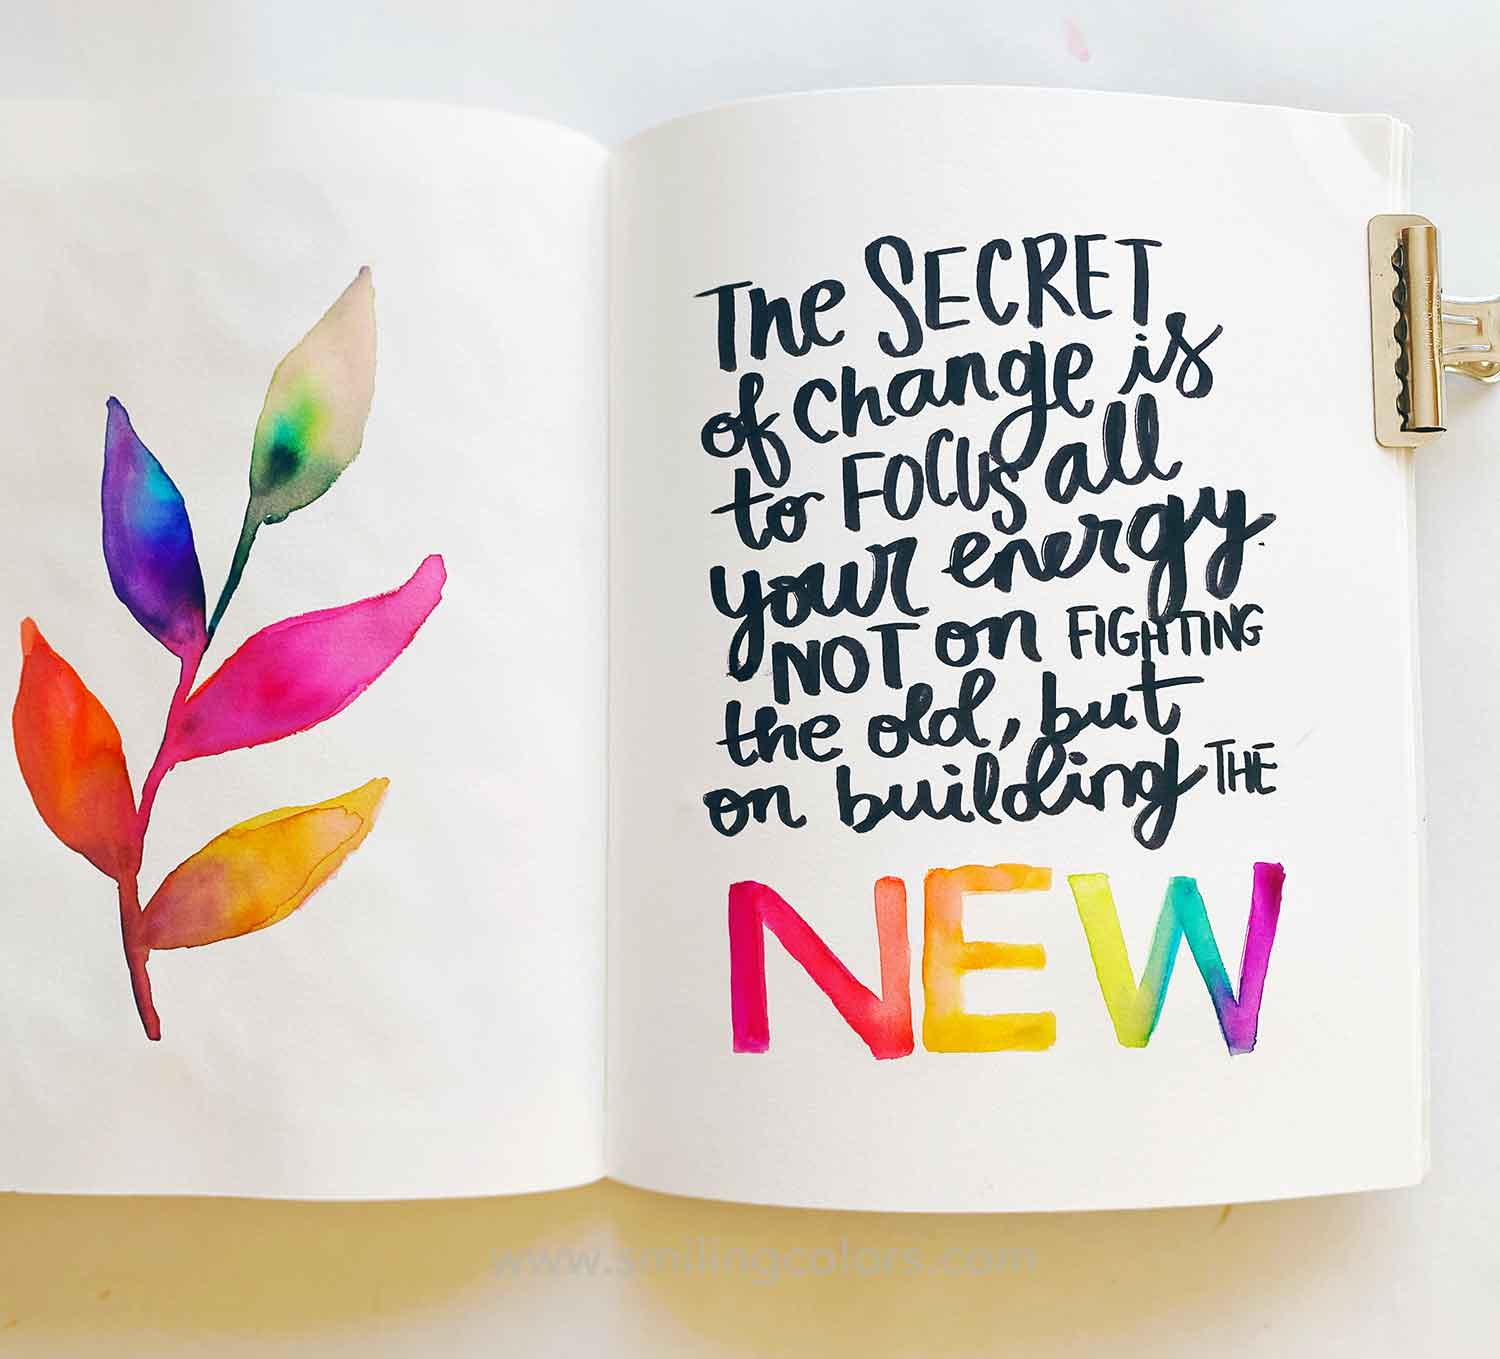 The SECRET
of change is
to FOCUS all
your energy.
NOT on FIGHTING
the old, but
on building THE
NEW
www.smilingcolors.com